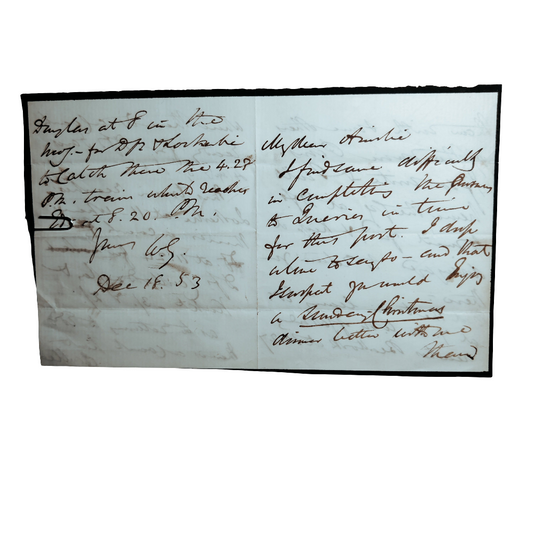 My dear Ainslie
I find some difficulty
in completing the Answers
to Queries in time
for this post. I drop
a line to say so - and that
I suspect you would enjoy
a Sunday-Christmas
dinner better with me
than
Douglas at 8 in the
mog. for & Lockerbie
to catch there the 4.28
P.M. train which reaches
at 8.20. P.M.
Yours W.G.
Dec 18. 53